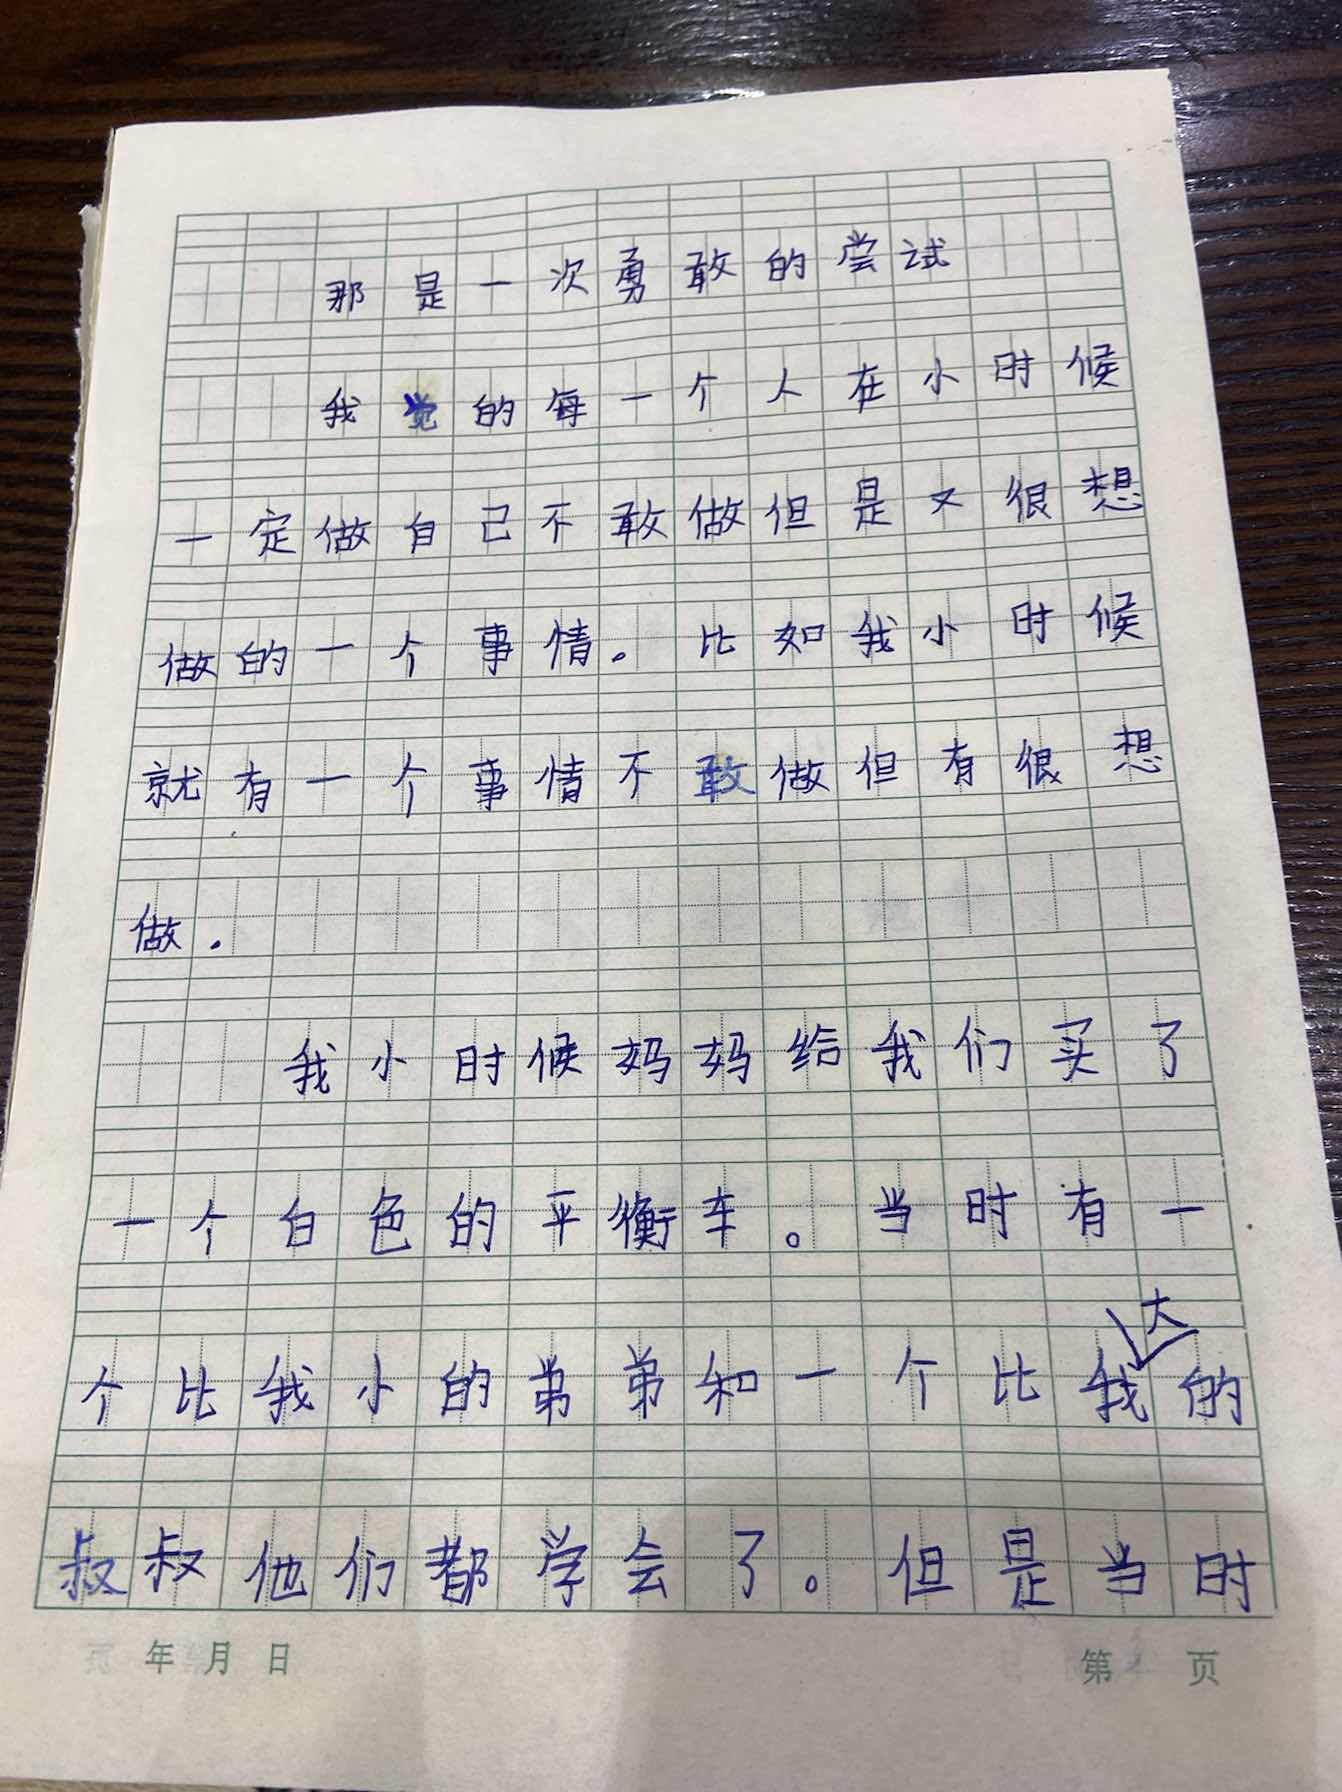 那是一次勇敢的尝试
我觉的每一个人在小时候
一定做自己不敢做但是又很想
做的一个事情。比如我小时候
就有一个事情不敢做但有很想
做.
我小时候妈妈给我们买了
一个白色的平衡车。当时有一
个比我小的弟弟和一个比我大的
叔叔他们都学会了。但是当时
年 月 日 第 页